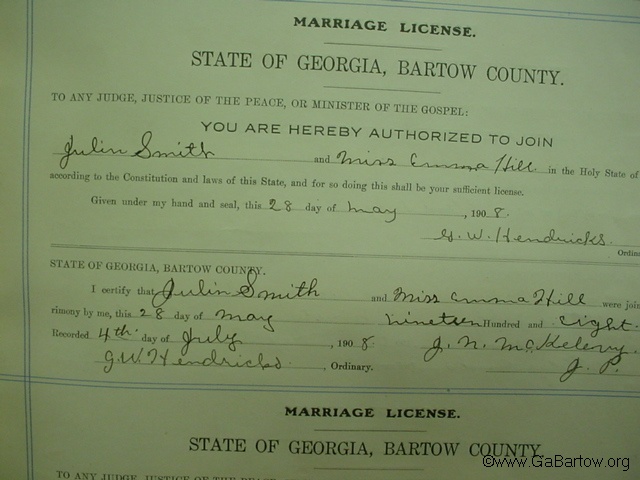 MARRIAGE LICENSE.
STATE OF GEORGIA, BARTOW COUNTY.
TO ANY JUDGE, JUSTICE OF THE PEACE, OR MINISTER OF THE GOSPEL:
YOU ARE HEREBY AUTHORIZED TO JOIN
Julin Smith and Miss Emma Hill in the Holy State of
according to the Constitution and laws of this State, and for so doing this shall be your sufficient license.
Given under my hand and seal, this 28 day of May, 1908.
G. W. Hendricks.
Ordin
STATE OF GEORGIA, BARTOW COUNTY.
I certify that Julin Smith and Miss Emma Hill were join
rimony by me, this 28 day of May Nineteen Hundred and eight.
Recorded 4th day of July, 1908 J. N. McKelvy.
G. W. Hendricks, Ordinary. J. P.
MARRIAGE LICENSE.
STATE OF GEORGIA, BARTOW COUNTY
©www.GaBartow.org
TO ANY JUDGE, JUSTICE OF THE PEACE,